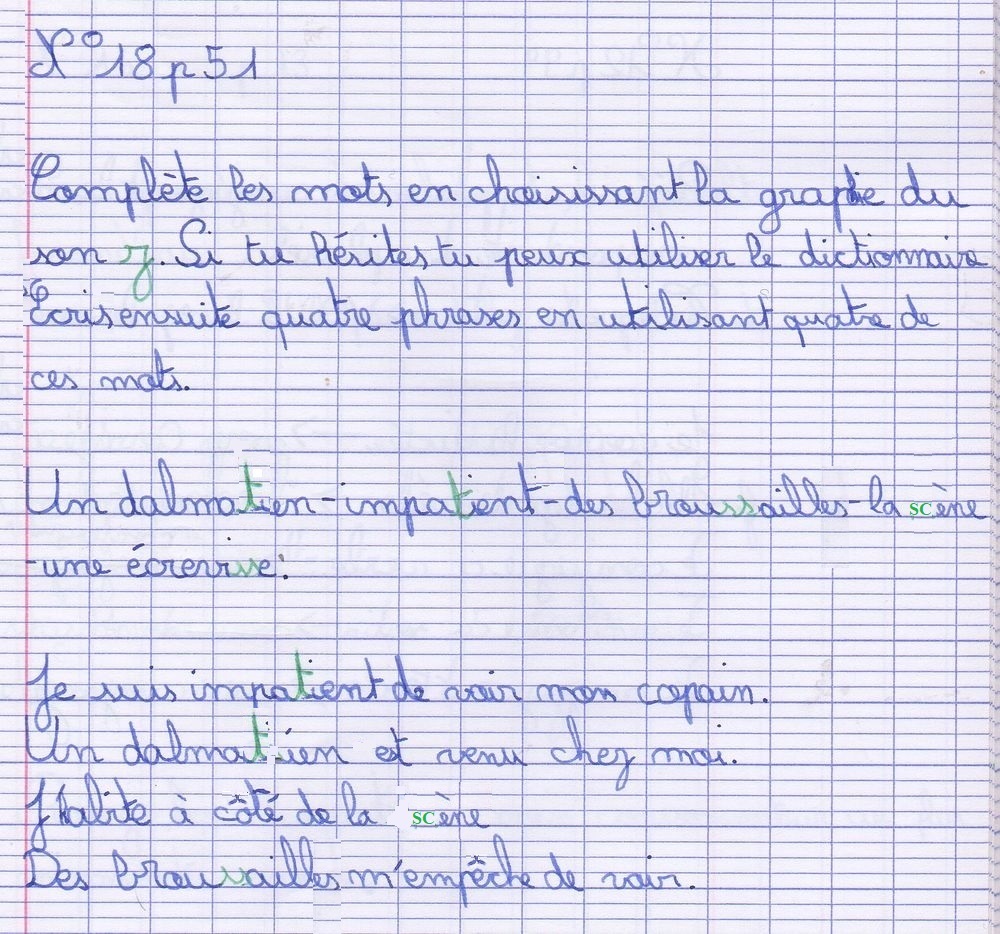 N° 18 p 51
Complète les mots en choisissant la graphie du
son z. Si tu hésites tu peux utiliser le dictionnaire
Écris ensuite quatre phrases en utilisant quatre de
ces mots.
Un dalmatien - impatient - des broussailles - la scène
- une écrevisse :
Je suis impatient de voir mon copain.
Un dalmatien est venu chez moi.
J'habite à côté de la scène
Des broussailles m'empêche de voir.